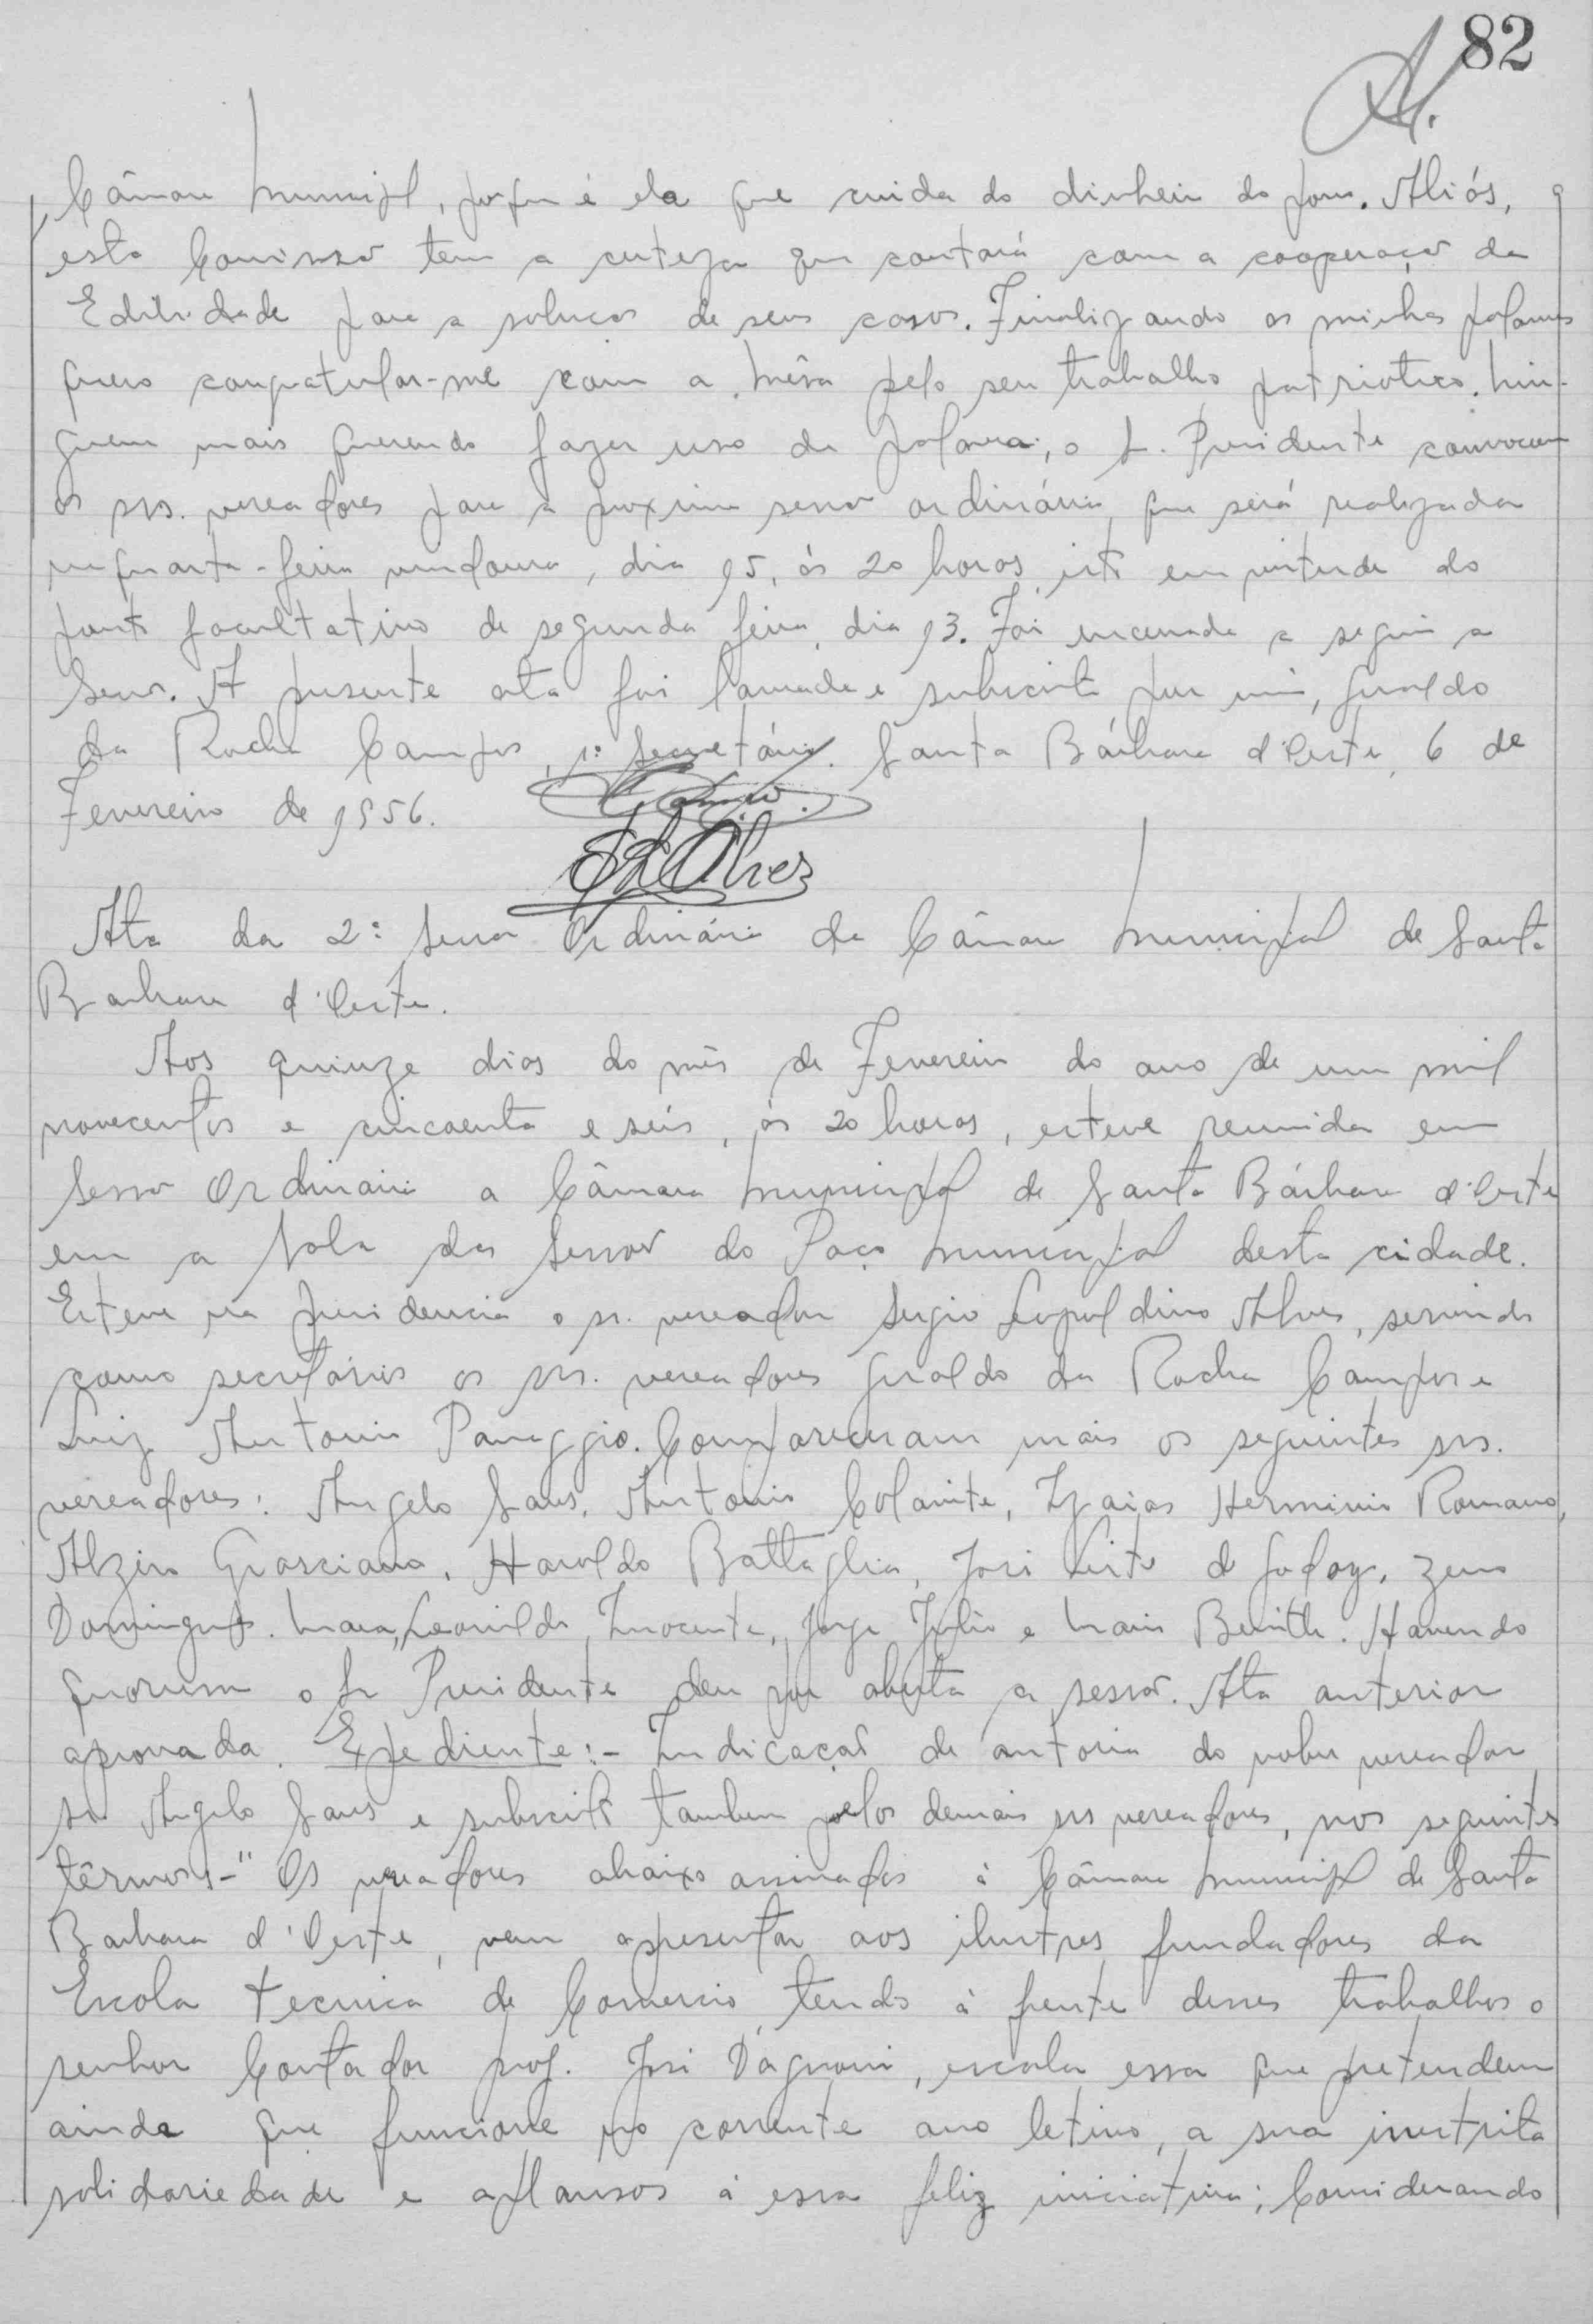 82
Câmara Municipal, porque é ela que cuida do dinheiro do povo. Aliás,
esta Comissão tem a certeza que contará com a cooperação da
Edilidade para a solução de seus casos. Finalizando as minhas palavras
quero congratular-me com a Mêsa pelo seu trabalho patriotico. Nin-
guem mais querendo fazer uso da palavra, o Sr. Presidente convocou
os srs. vereadores para a proxima sessão ordinária, que será realizada
na quarta-feira vindoura, dia 15, ás 20 horas, isto em virtude do
ponto facultativo de segunda feira, dia 13. Foi encerrada a seguir a
Sessão. A presente ata foi lavrada e subscrita por mim, Geraldo
da Rocha Campos, 1º Secretário. Santa Bárbara d'Oeste, 6 de
Fevereiro de 1956.
Campos.
SLAlves
Ata da 2ª Sessão Ordinária da Câmara Municipal de Santa
Barbara d'Oeste.
Aos quinze dias do mês de Fevereiro do ano de um mil
novecentos e cincoenta e seis, ás 20 horas, esteve reunida em
Sessão Ordinaria a Câmara Municipal de Santa Bárbara d'Oeste
em a Sala das Sessões do Paço Municipal desta cidade.
Esteve na presidencia o sr. vereador Sergio Leopoldino Alves, servindo
como secretários os srs. vereadores Geraldo da Rocha Campos e
Luiz Antonio Panaggio. Compareceram mais os seguintes srs.
vereadores: Angelo Sans, Antonio Colante, Izaias Herminio Romano,
Alziro Grasciano, Haroldo Battaglia, José Leite de Godoy, Zeno
Domingues Maia, Leonildo Inocente, Jorge Julio e Mario Beinith. Havendo
quorum o Sr Presidente deu por aberta a sessão. Ata anterior
aprovada. Expediente:- Indicação de autoria do nobre vereador
sr Angelo Sans e subscrita tambem pelos demais srs vereadores, nos seguintes
têrmos:-" Os vereadores abaixo assinados á Câmara Municipal de Santa
Barbara d'Oeste, vem apresentar aos ilustres fundadores da
Escola Tecnica de Comercio, tendo á frente desses trabalhos o
senhor Contador prof. José D'agnoni, escola essa que pretendem
ainda que funcione no corrente ano letivo, a sua irrestrita
solidariedade e aplausos á essa feliz iniciativa; Considerando